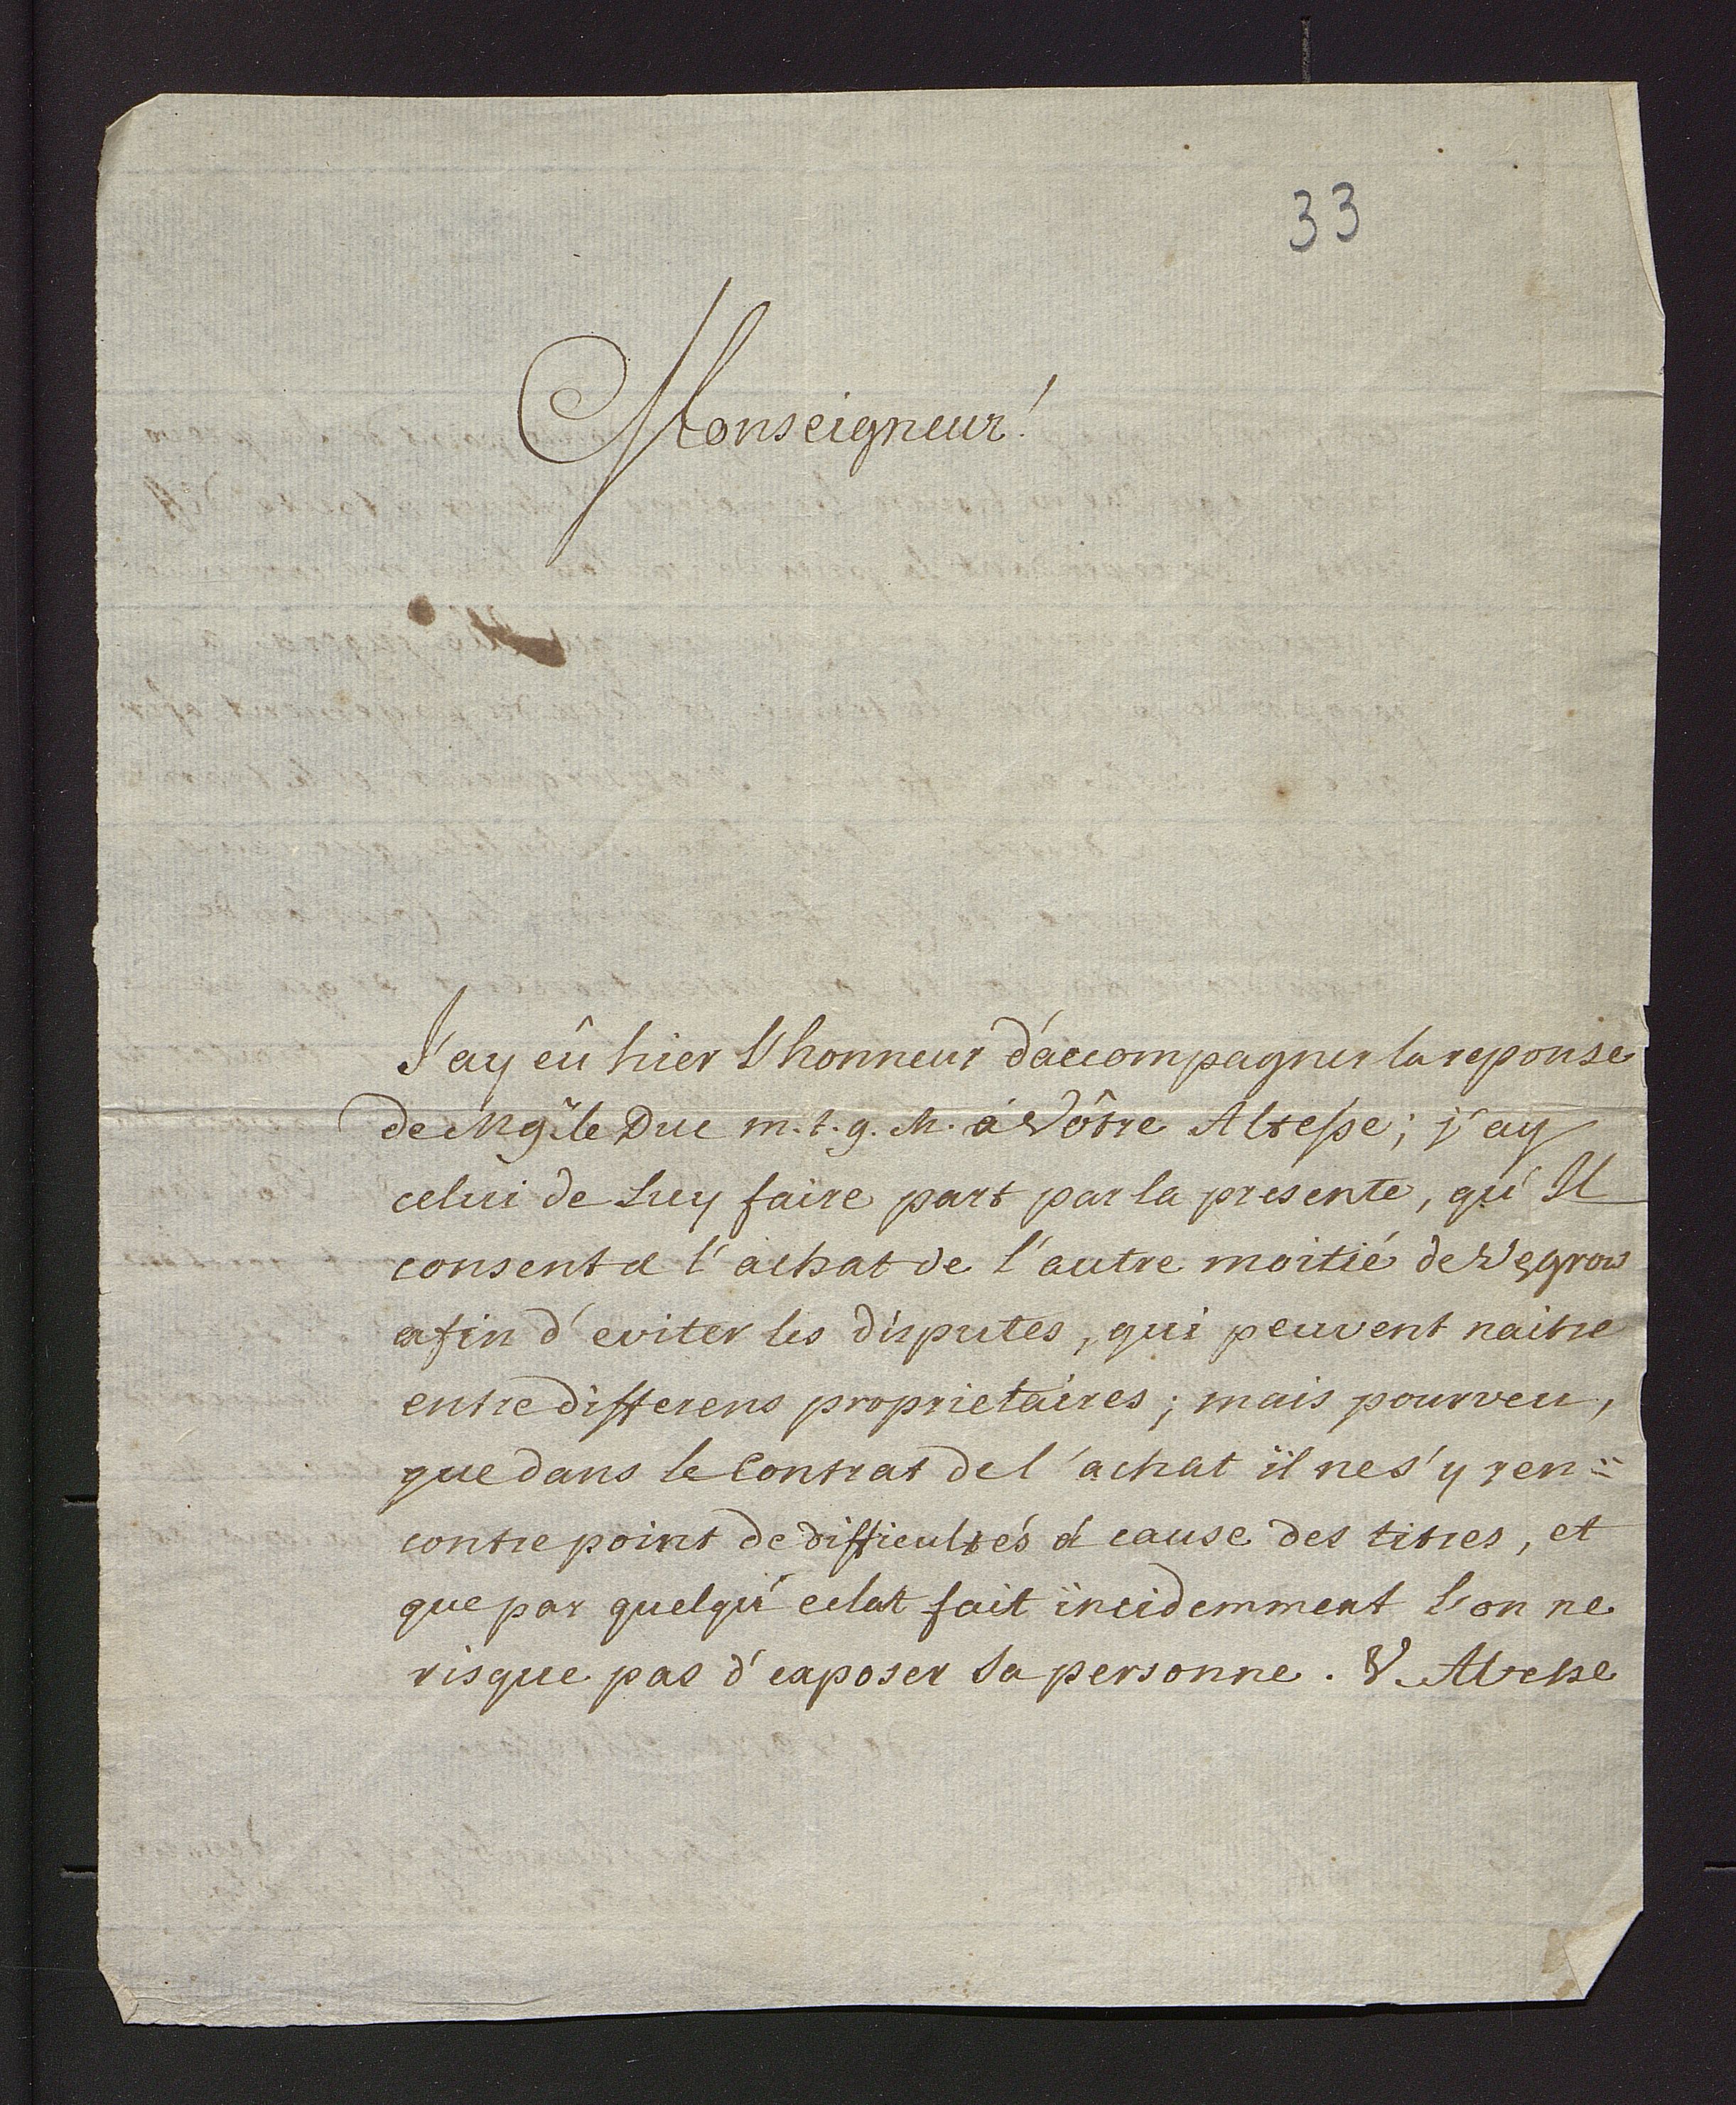 33
Monseigneur!
J'ay eû hier l'honneur d'accompagner la reponse
de Mgr. le Duc m. t. g. M. á Vôtre Altesse; j'ay
celui de Luy faire part par la presente, qu'Il
consent á l'achat de l'autre moitié de Wegrow
afin d'eviter les disputes, qui peuvent naitre
entre differens proprietaires; mais pourveu,
que dans le Contrat de l'achat il ne s'y ren=
contre point de difficultés á cause des titres, et
que par quelqu'eclat fait incidemment l'on ne
risque pas d'exposer Sa personne. V. Altesse